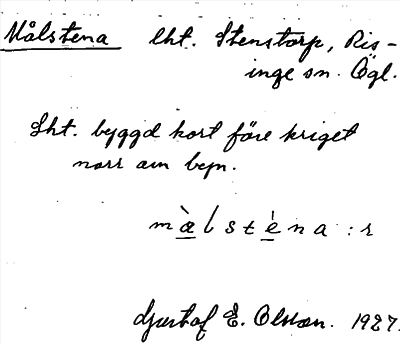 Målstena lht. Stenstorp, Ris-
inge sn. Ögl.
Lht. byggd kort före kriget
norr om byn.
mæ̀lstèna :r
Gustaf E. Olsson. 1927.